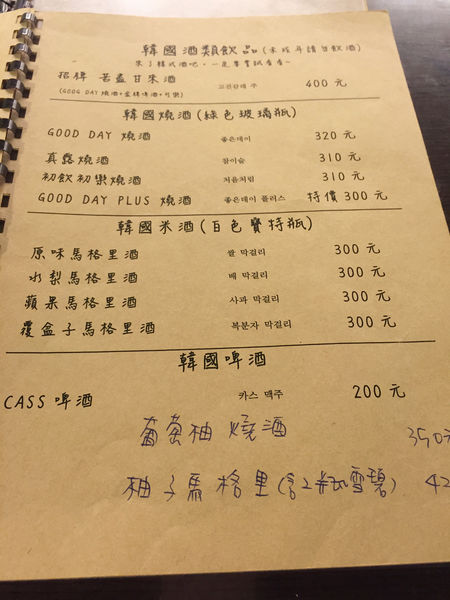 韓國酒類飲品(未成年請勿飲酒)
來了韓式酒吧，一定要嘗試看看~
招牌 苦盡甘來酒 고진감래 주 400 元
(GOOG DAY 燒酒+韓式啤酒+可樂)
韓國燒酒(綠色玻璃瓶)
GOOD DAY 燒酒 좋은데이 320 元
真露燒酒 참이슬 310 元
初飲初樂燒酒 처음처럼 310 元
GOOD DAY PLUS 燒酒 좋은데이 플러스 特價 300 元
韓國米酒(白色寶特瓶)
原味馬格里酒 쌀 막걸리 300 元
水梨馬格里酒 배 막걸리 300 元
蘋果馬格里酒 사과 막걸리 300 元
覆盆子馬格里酒 복분자 막걸리 300 元
韓國啤酒
CASS 啤酒 카스 맥주 200 元
葡萄柚 燒酒 350元
柚子馬格里(含2瓶雪碧) 42